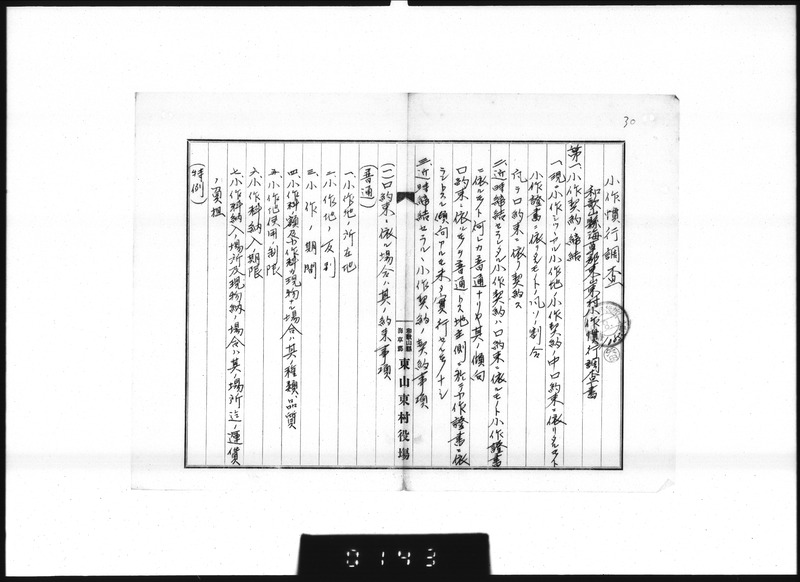 30
小作慣行調査
和歌山縣海草郡東山東村小作慣行調査書
第一、小作契約ノ締結
一、現ニ小作シツヽアル小作地ノ小作契約中口約束ニ依リタルモノト
小作證書ニ依リタルモノトノ凡ソノ割合
凡テ口約束ニ依リ契約ス
二、近時締結セラレタル小作契約ハ口約束ニ依ルモノト小作證書
ニ依ルモノト何レカ普通ナリヤ其ノ傾向
口約束ニ依ルモノヲ普通トス地主側ニ於テ小作證書ニ依
ラントスル傾向アルモ未タ實行セルモノナシ
三、近時締結セラルヽ小作契約ノ契約事項
和歌山縣
海草郡
東山東村役場
(一)口約束ニ依ル場合ハ其ノ約束事項
(普通)
一、小作地ノ所在地
二、小作地ノ反別
三、小作ノ期間
四、小作料額及小作料カ現物ナル場合ハ其ノ種類、品質
五、小作地使用ノ制限
六、小作料納入ノ期限
七、小作料納入場所及現物納ノ場合ハ其ノ場所迄ノ運賃
ノ負担
(特例)
0143